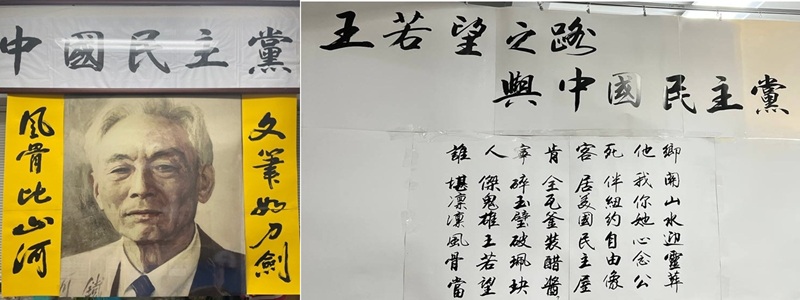 中國民主黨
文筆如刀劍
風骨比山河
王若望之路
與中國民主黨
誰堪凜凜風骨當
人傑鬼雄王若望
寧碎玉璧破珮玦
肯全瓦釜裝醋醬
客居美國民主屋
死伴紐約自由像
他我你她心念公
鄉關山水迎靈葬